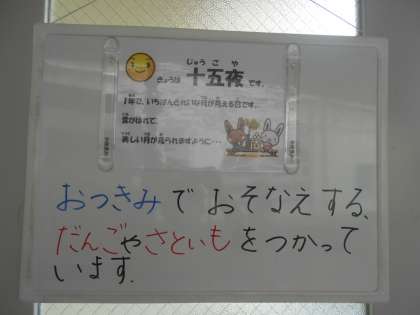 じゅう ご や
きょうは 十五夜 です。
1年で、いちばんきれいな月が見える日です。
雲がはれて、
美しい月が見られますように・・・
おつきみで おそなえする、
だんごやさといもをつかって
います.